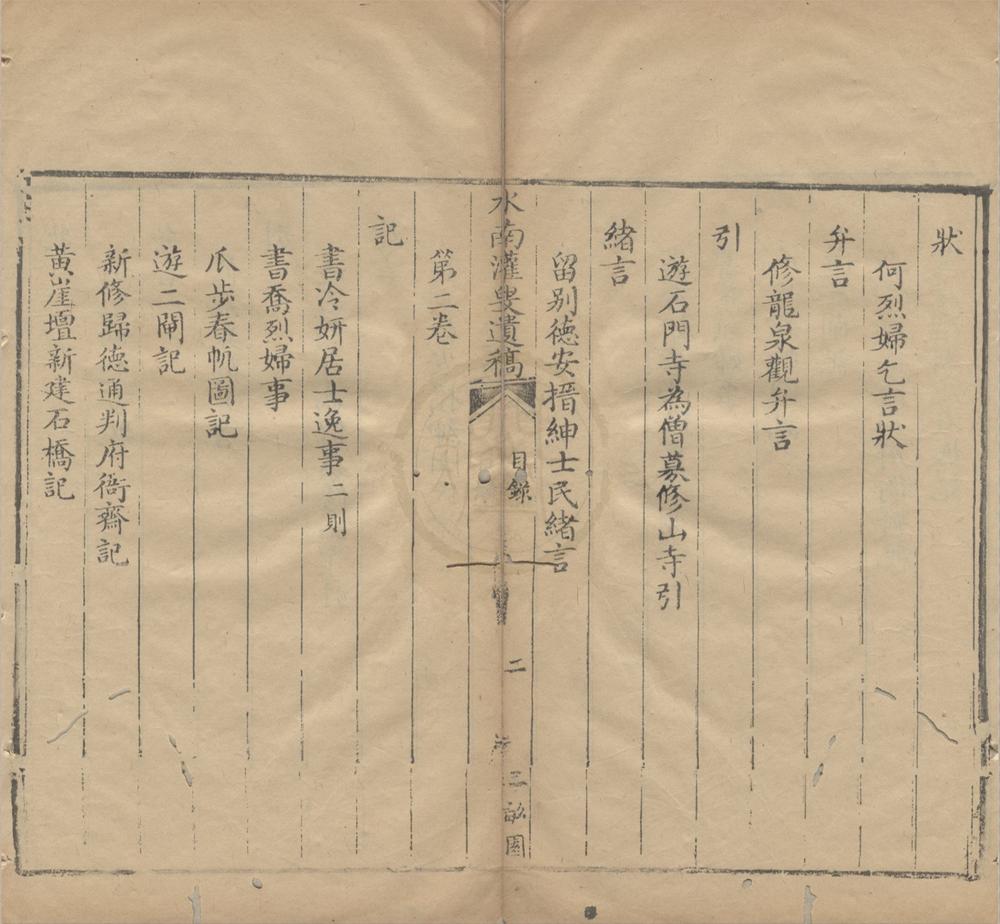 狀
何烈婦乞言狀
弁言
修龍泉觀弁言
引
遊石門寺為僧募修山寺引
緒言
留别德安搢紳士民緒言
水南灌叟遺稿
目錄
二
三畝園
第二卷
記
書冷妍居士逸事二則
書喬烈婦事
爪步春帆圖記
遊二閘記
新修歸德通判府衙齋記
黃崖壇新建石橋記